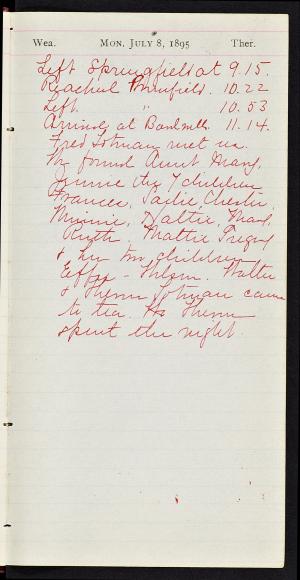 Wea. Mon. July 8, 1895 Ther.
Left Springfield at 9.15.
Reached 10.22
Left " 10.53
Arrived at 11.14.
Fred Lotman met us.
We found Aunt Mary,
Jennie the 7 children
Frances, Sadie, Chester,
Minnie, Hattie, Mary,
Ruth. Mattie
& her children
Effie - Walter
& Lotman came
to tea.
spent the night.